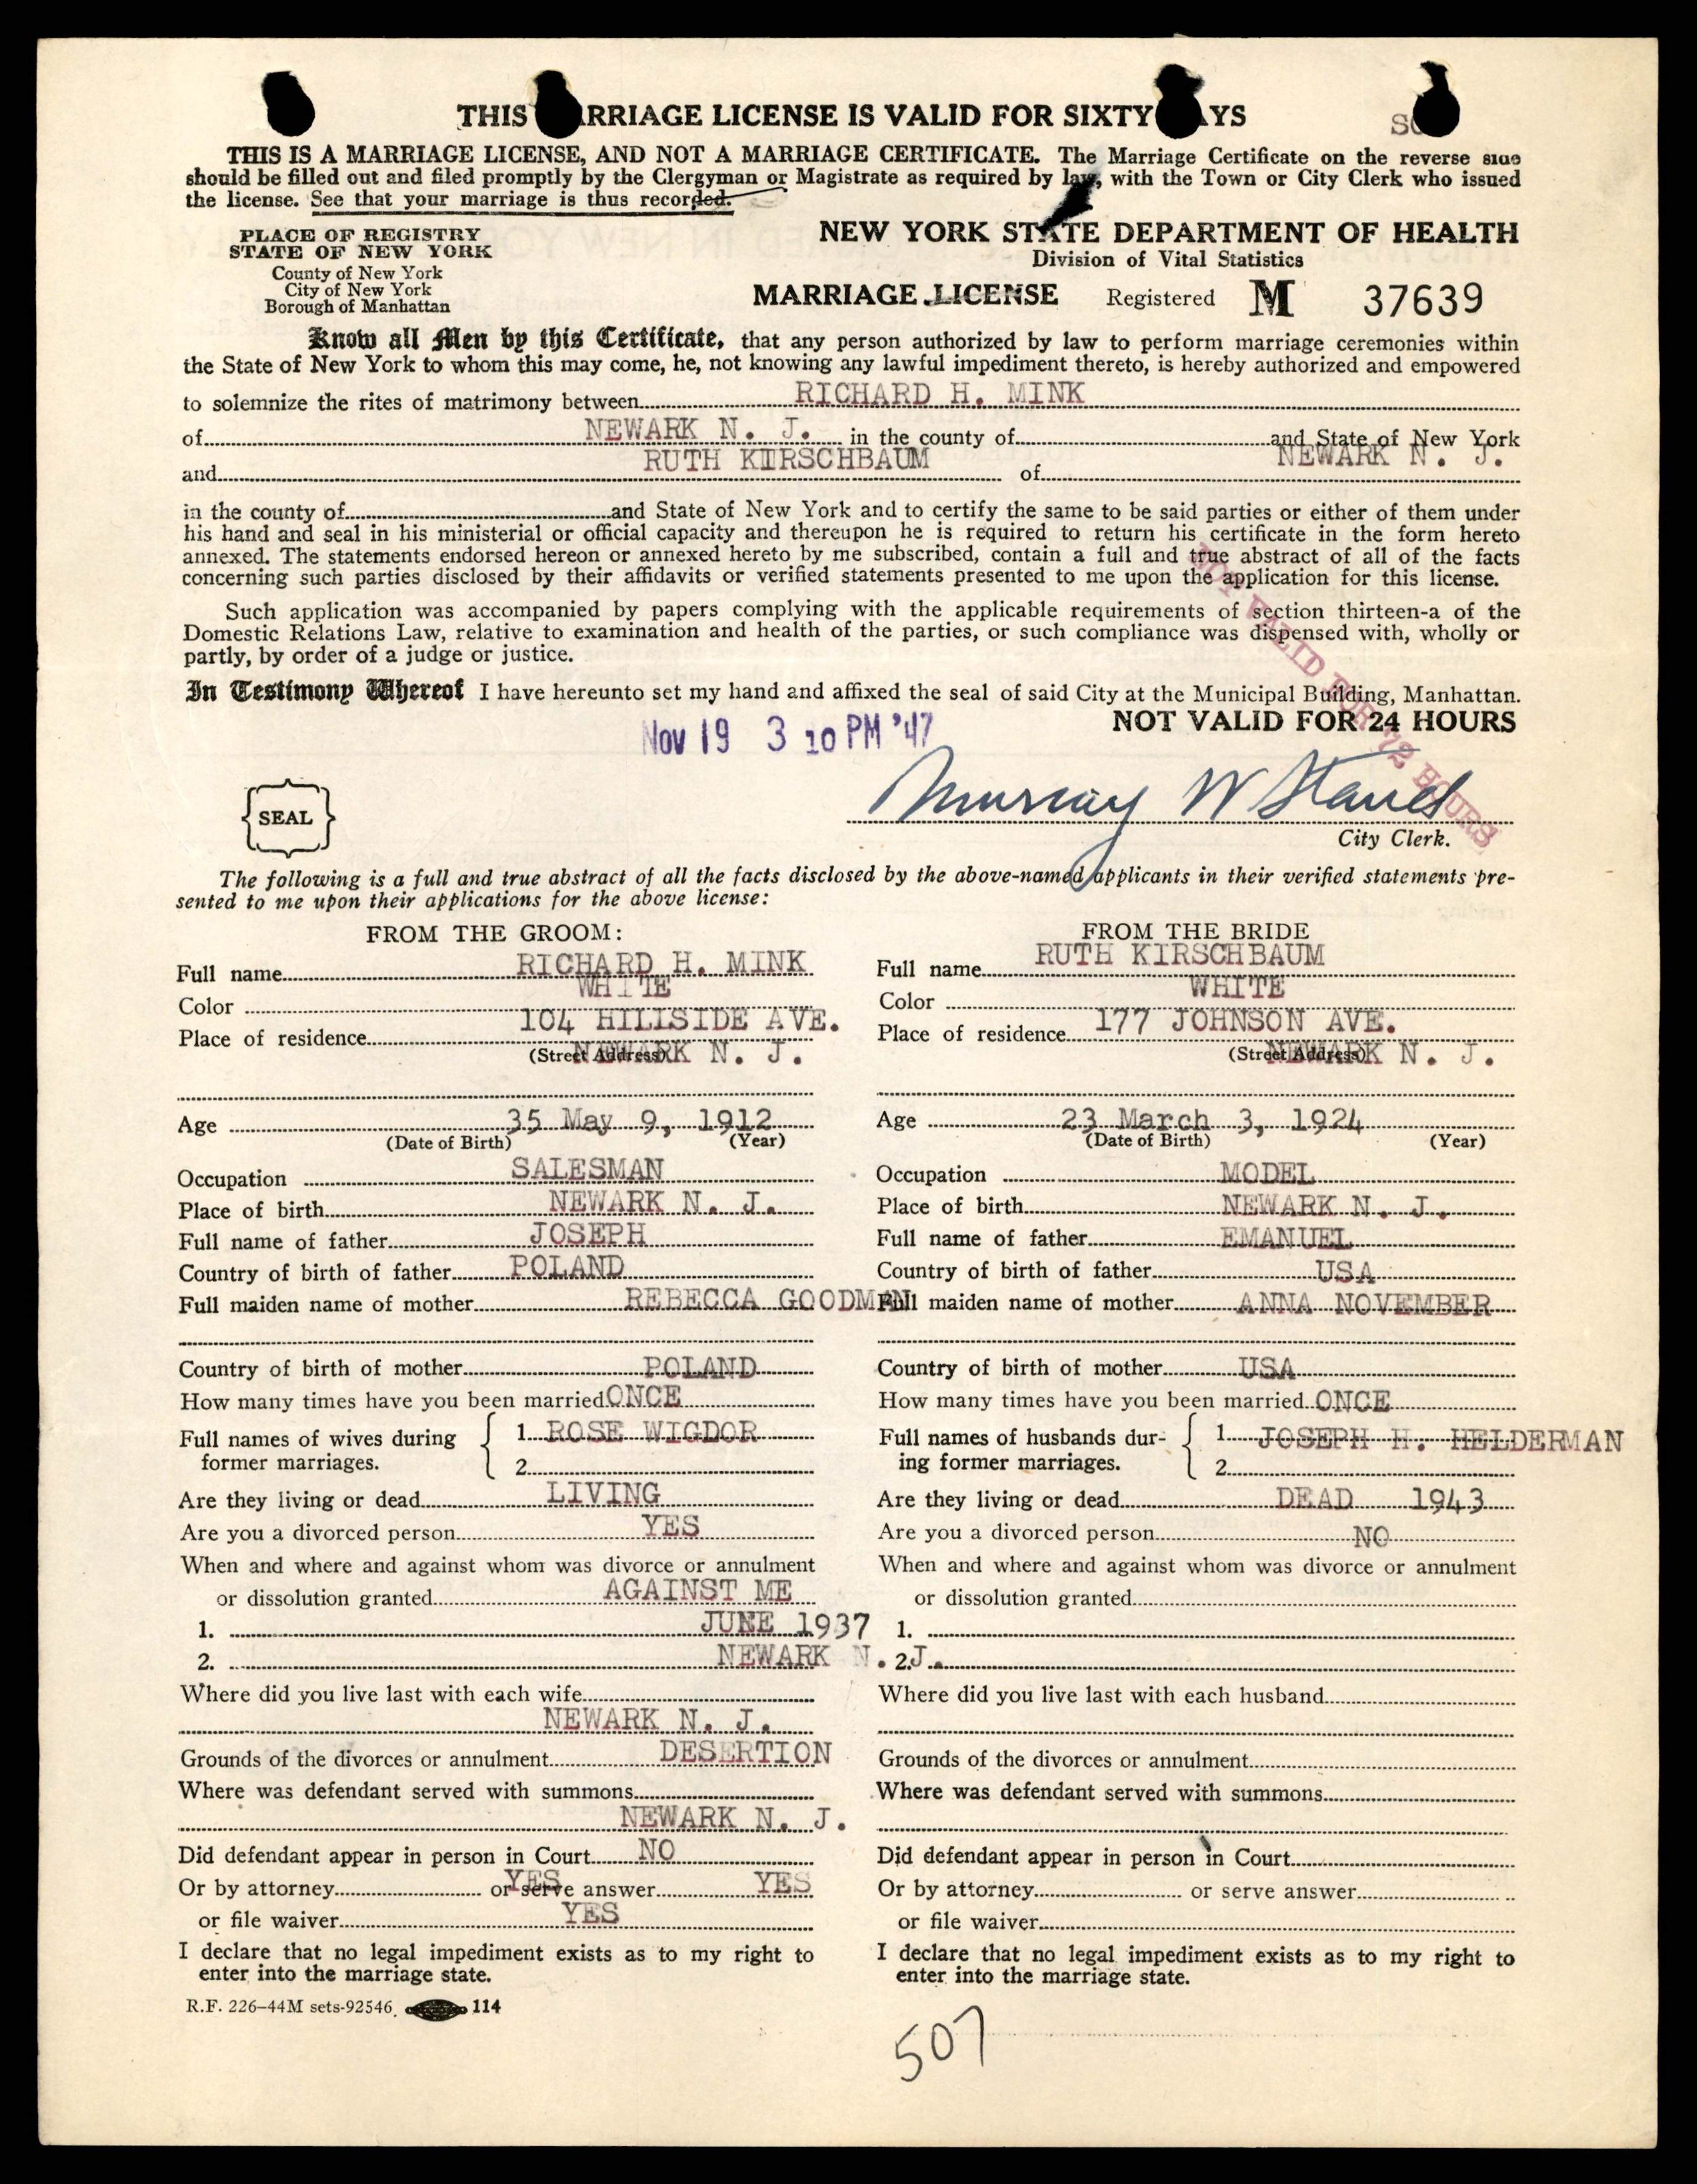 THIS MARRIAGE LICENSE IS VALID FOR SIXTY DAYS
THIS IS A MARRIAGE LICENSE, AND NOT A MARRIAGE CERTIFICATE. The Marriage Certificate on the reverse side
should be filled out and filed promptly by the Clergyman or Magistrate as required by law, with the Town or City Clerk who issued
the license. See that your marriage is thus recorded.
PLACE OF REGISTRY
STATE OF NEW YORK
County of New York
City of New York
Borough of Manhattan
NEW YORK STATE DEPARTMENT OF HEALTH
Division of Vital Statistics
MARRIAGE LICENSE Registered M 37639
Know all Men by this Certificate, that any person authorized by law to perform marriage ceremonies within
the State of New York to whom this may come, he, not knowing any lawful impediment thereto, is hereby authorized and empowered
to solemnize the rites of matrimony between RICHARD H. MINK
of NEWARK N. J. in the county of and State of New York
and RUTH KIRSCHBAUM of NEWARK N. J.
in the county of and State of New York and to certify the same to be said parties or either of them under
his hand and seal in his ministerial or official capacity and thereupon he is required to return his certificate in the form hereto
annexed. The statements endorsed hereon or annexed hereto by me subscribed, contain a full and true abstract of all of the facts
concerning such parties disclosed by their affidavits or verified statements presented to me upon the application for this license.
Such application was accompanied by papers complying with the applicable requirements of section thirteen-a of the
Domestic Relations Law, relative to examination and health of the parties, or such compliance was dispensed with, wholly or
partly, by order of a judge or justice.
In Testimony Whereof I have hereunto set my hand and affixed the seal of said City at the Municipal Building, Manhattan.
NOT VALID FOR 24 HOURS
NOT VALID FOR 72 HOURS
Nov 19 3 10 PM '47
Murray W Stand
SEAL
City Clerk.
The following is a full and true abstract of all the facts disclosed by the above-named applicants in their verified statements pre-
sented to me upon their applications for the above license:
FROM THE GROOM:
Full name RICHARD H. MINK
Color WHITE
Place of residence 104 HILLSIDE AVE.
(Street Address) NEWARK N. J.
Age 35 May 9, 1912
(Date of Birth) (Year)
Occupation SALESMAN
Place of birth NEWARK N. J.
Full name of father JOSEPH
Country of birth of father POLAND
Full maiden name of mother REBECCA GOODMAN
Country of birth of mother POLAND
How many times have you been married ONCE
Full names of wives during former marriages. 1. ROSE WIGDOR
2.
Are they living or dead LIVING
Are you a divorced person YES
When and where and against whom was divorce or annulment
or dissolution granted AGAINST ME
1. JUNE 1937
2. NEWARK N. J.
Where did you live last with each wife
NEWARK N. J.
Grounds of the divorces or annulment DESERTION
Where was defendant served with summons
NEWARK N. J.
Did defendant appear in person in Court NO
Or by attorney YES or serve answer YES
or file waiver YES
I declare that no legal impediment exists as to my right to
enter into the marriage state.
R.F. 226-44M sets-92546 114
FROM THE BRIDE
Full name RUTH KIRSCHBAUM
Color WHITE
Place of residence 177 JOHNSON AVE.
(Street Address) NEWARK N. J.
Age 23 March 3, 1924
(Date of Birth) (Year)
Occupation MODEL
Place of birth NEWARK N. J.
Full name of father EMANUEL
Country of birth of father USA
Full maiden name of mother ANNA NOVEMBER
Country of birth of mother USA
How many times have you been married ONCE
Full names of husbands dur-
ing former marriages. 1. JOSEPH H. HELDERMAN
2.
Are they living or dead DEAD 1943
Are you a divorced person NO
When and where and against whom was divorce or annulment
or dissolution granted
1.
2.
Where did you live last with each husband
Grounds of the divorces or annulment
Where was defendant served with summons
Did defendant appear in person in Court
Or by attorney or serve answer
or file waiver
I declare that no legal impediment exists as to my right to
enter into the marriage state.
507